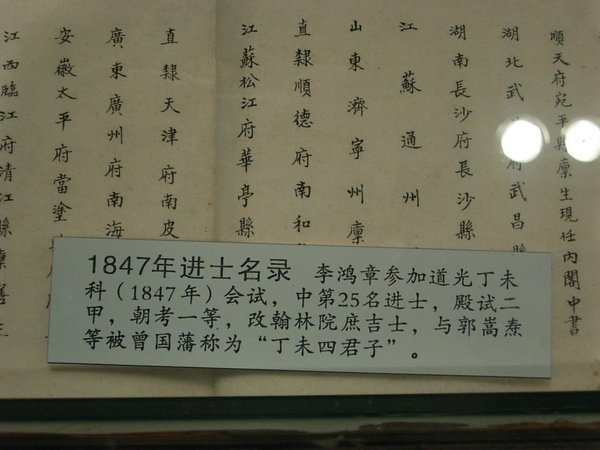 順天府宛平縣廩生現任內閣中書
湖北武昌府武昌縣
湖南長沙府長沙縣
江蘇通州
山東濟寧州廩
直隸順德府南和
江蘇松江府華亭縣
直隸天津府南皮
廣東廣州府南海
安徽太平府當塗
江西臨江府清江縣廩善生
1847年进士名录 李鸿章参加道光丁未
科（1847年）会试，中第25名进士，殿试二
甲，朝考一等，改翰林院庶吉士，与郭嵩焘
等被曾国藩称为“丁未四君子”。